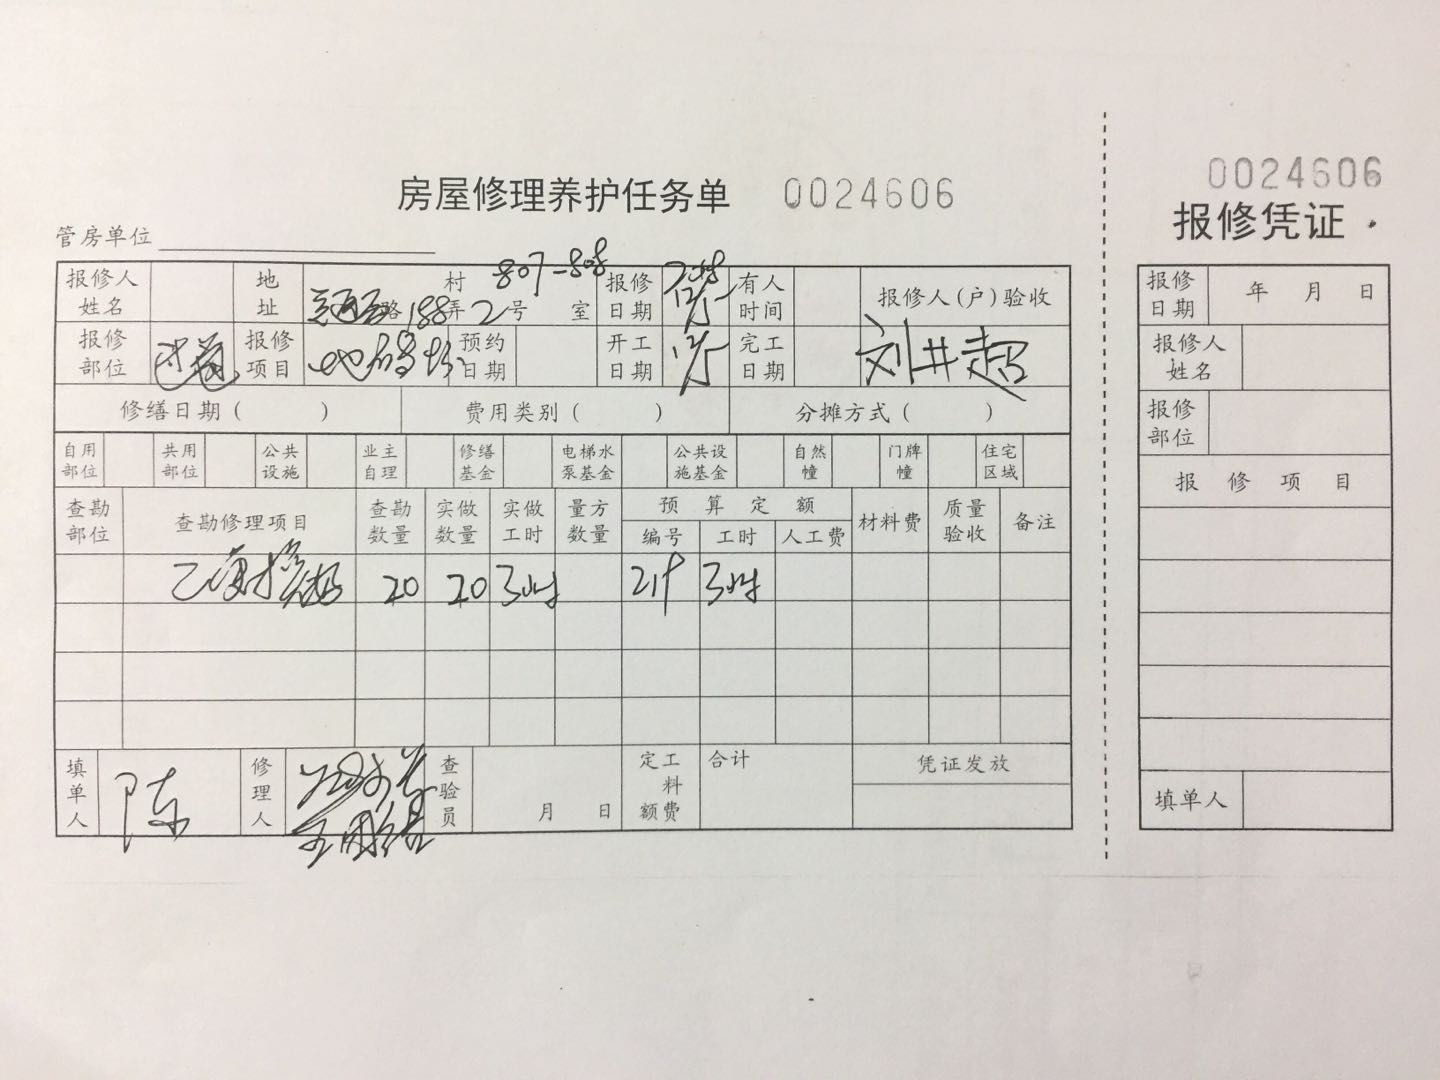 房屋修理养护任务单 0024606
管房单位
报修人姓名 地址 村 路 188弄 2号 807-808 室 报修日期 12/5 有人时间 报修人(户)验收
报修部位 过道 报修项目 地砖 预约日期 开工日期 12/5 完工日期 刘井超
修缮日期( ) 费用类别( ) 分摊方式( )
自用部位 共用部位 公共设施 业主自理 修缮基金 电梯水泵基金 公共设施基金 自然幢 门牌幢 住宅区域
查勘部位 查勘修理项目 查勘数量 实做数量 实做工时 量方数量 预算定额 材料费 质量验收 备注
编号 工时 人工费
20 20 3
3
填单人 陈 修理人 查验员 月 日 定额工料费 合计 凭证发放
0024606
报修凭证
报修日期 年 月 日
报修人姓名
报修部位
报修项目
填单人